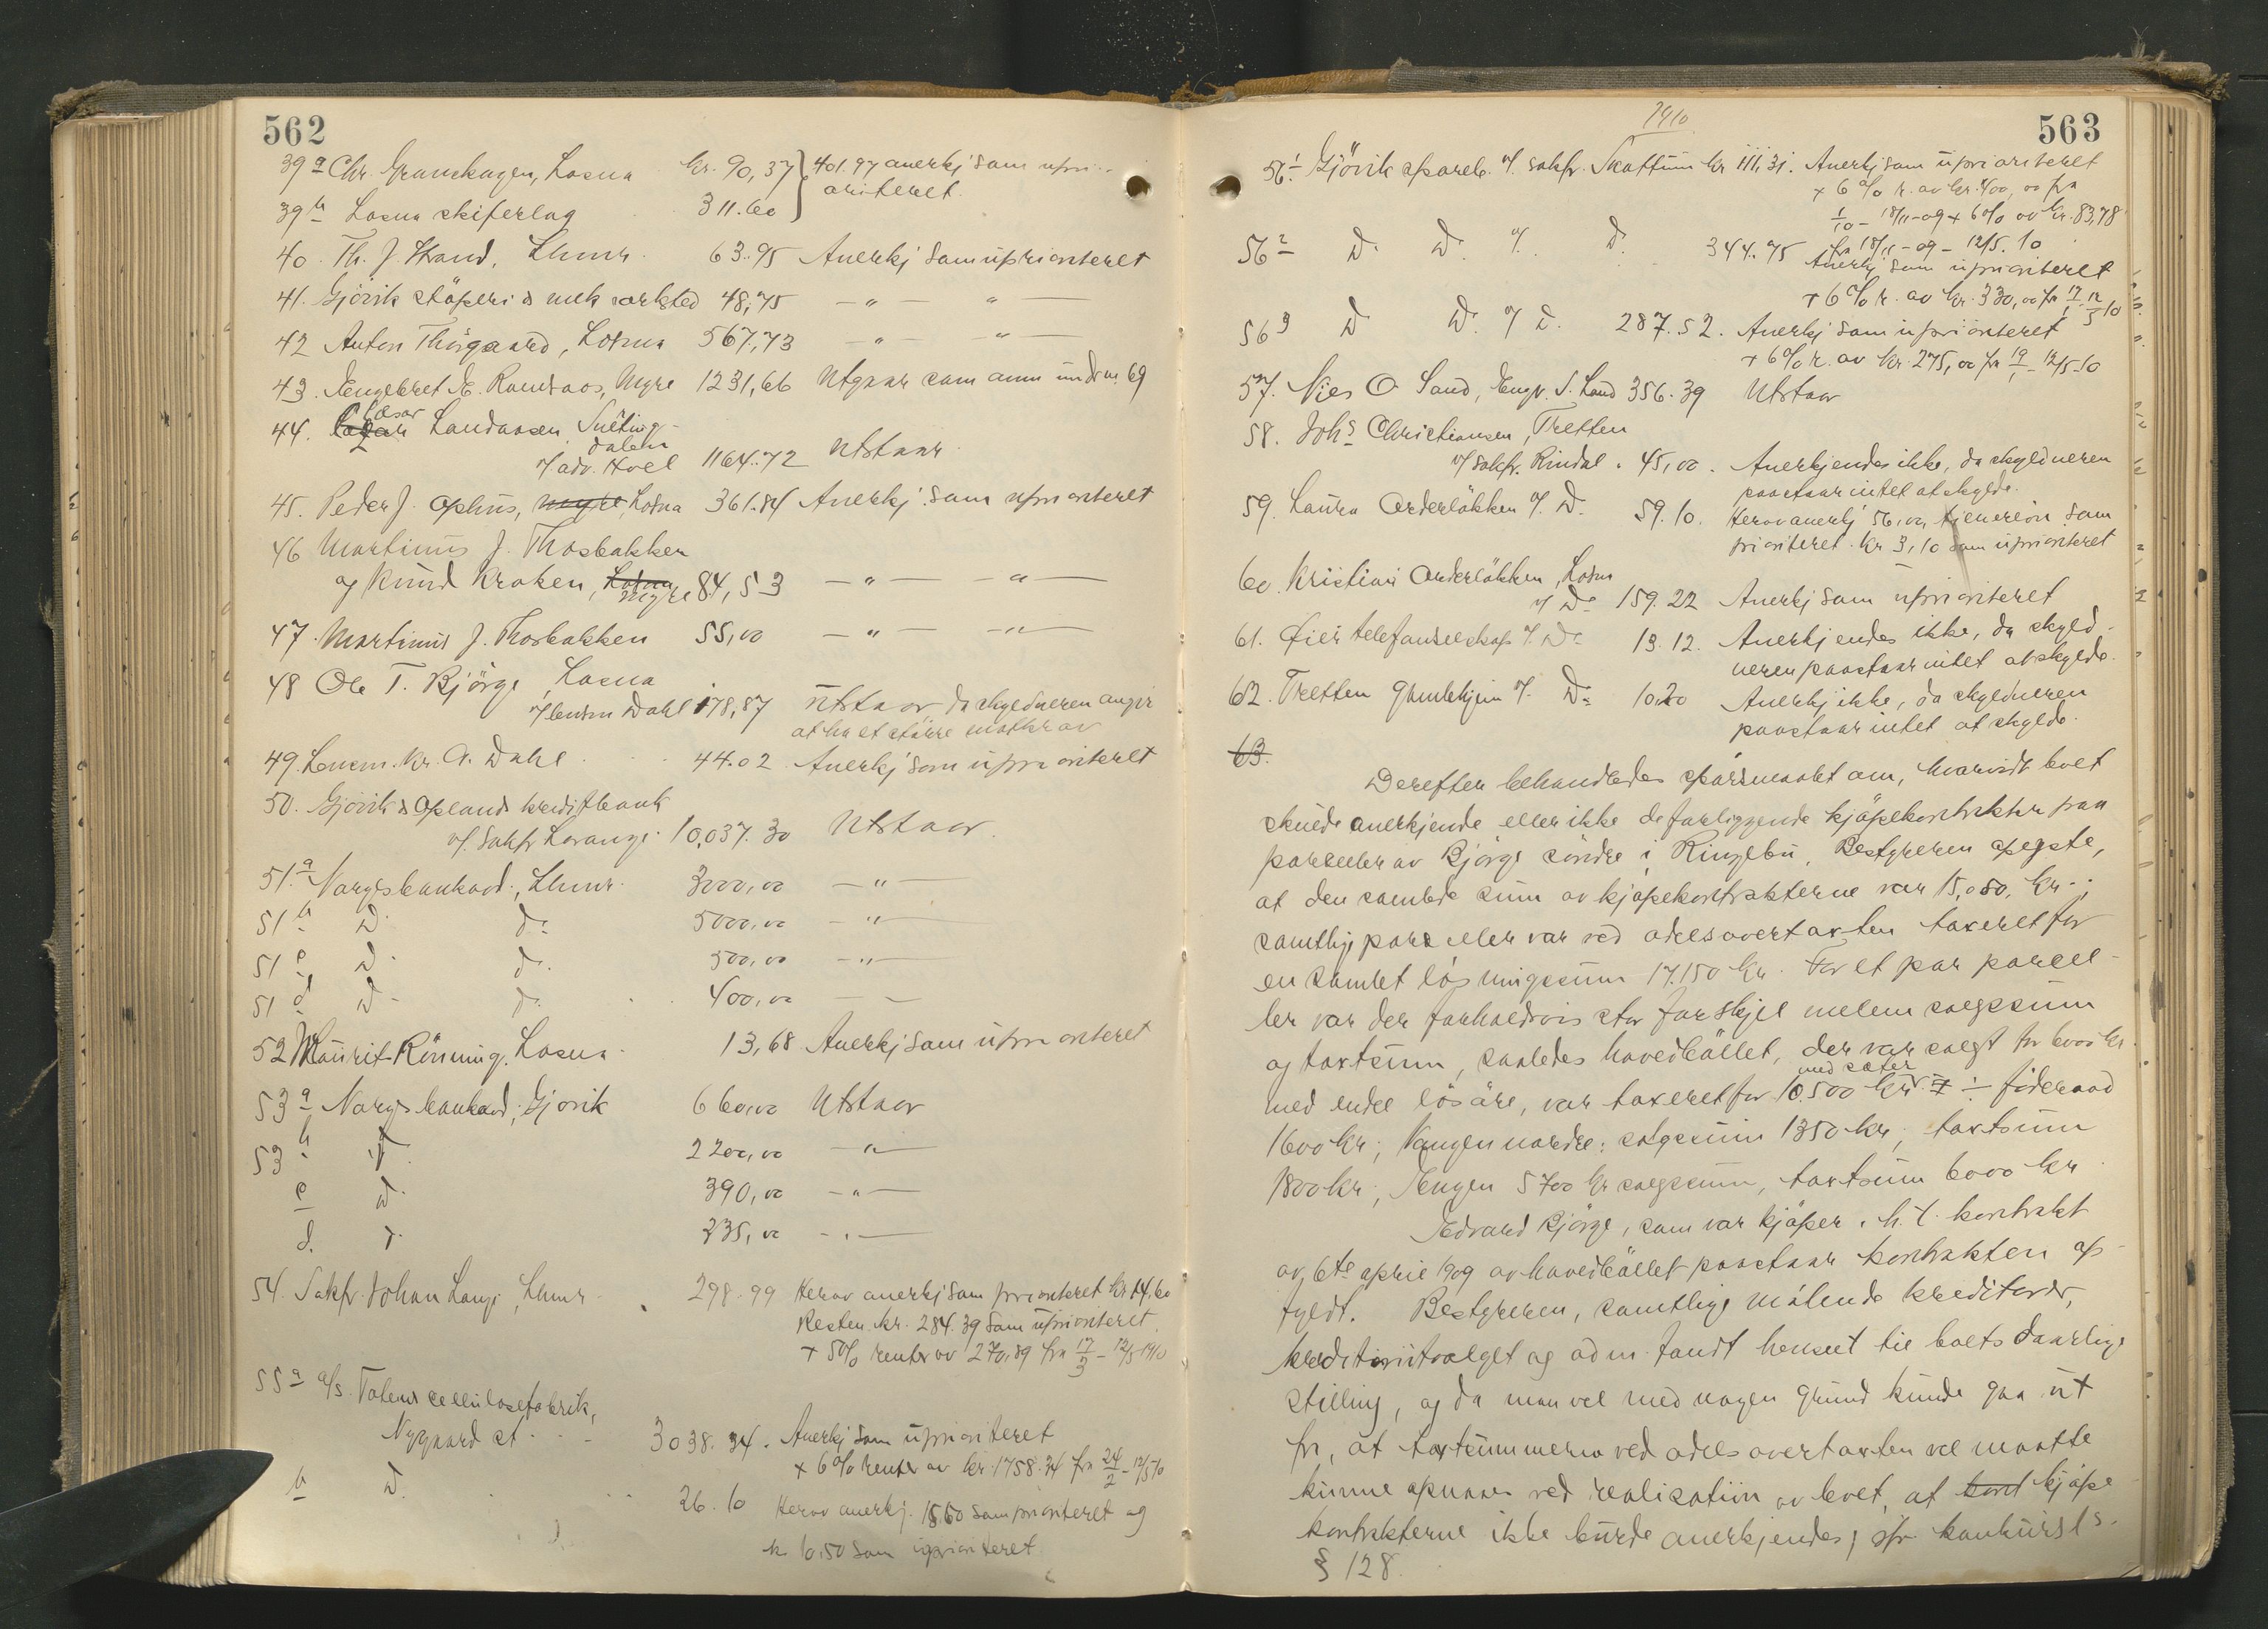 562
39a Chr. Granskagen, Losna kr. 90,37 } 401.97 anerkj som upri-
oriteret.
39b Losna skiferlag 311.60
40. Th. J. Strand, Lhmr. 63.95 Anerkj som uprioriteret
41. Gjövik stöperi & mek værksted 48,75 — " — " —
42 Anton Thorgaard, Losna 567,73 — " — " —
43. Engebret E. Randaas, Myre 1231,66 Utgaar som anm under 69
44. Cæsar Landaasen Snerting-
dalen
v/ adv. Hoel 1164.72 Utstaar
45. Peder J. Ophus, Myre Losna 361.84 Anerkj. som uprioriteret
46 Martinus J. Thosbakken
og Knud Kraken, Losna Myre 84,53 — " — " —
47. Martinus J. Thosbakken 55,00 — " — " —
48 Ole T. Björge, Losna
v/ lensm Dahl 178,87 Utstaar da skyldneren angir
at ha et större motkrav
49. Lensm. Kr. A. Dahl 44.02 Anerkj som uprioriteret
50. Gjövik & Oplands kreditbank
v/ sakfr Lorange 10,037.30 Utstaar.
51.a Norges bankavd., Lhmr. 3000,00 — " —
51 b Do do 5000,00 — " —
51 c Do do 500,00 — " —
51 d Do do 400,00 — —
52 Maurits Rönning, Losna 13,68 Anerkj som uprioriteret
53 a Norges bankavd. Gjövik 660,00 Utstaar
53 b do 2200,00 — " —
c do 390,00 — " —
d. do 235,00 — " —
54. Sakfr. Johan Lange, Lhmr. 298.99 Herav anerkj som prioriteret kr 14,60
Resten kr. 284.39 som uprioriteret
+ 5% renter av 270,89 fra 17/3 - 12/5 1910
55 a A/s. Totens cellulosefabrik,
Nygaard st. 3038.34. Anerkj som uprioriteret
+ 6% renter av kr. 1758.34 fra 24/2 - 12/5 10
b Do. 26.10 Herav anerkj. 15.60 som prioriteret og
kr 10,50 som uprioriteret
1910
563
56.1 Gjövik spareb. v/ sakfr. Skattum kr 111,31. Anerkj som uprioriteret
+ 6% r. av kr. 400,00 fra
1/10 - 18/11-09 + 6% av kr. 83,78
fra 18/11-09 - 12/5.10
56 2 Do Do v/. Do 344.75 Anerkj som uprioriteret
+ 6% r. av kr. 330,00 fra 17/1 - 12/5 10
56 3 Do Do v/ Do. 287.52. Anerkj som uprioriteret
+ 6% r. av kr. 275,00 fra 19/1 - 12/5-10
57. Nies O Sand, Enge. S. Land 356.39 Utstaar
58. Johs Christiansen, Tretten
v/ sakfr. Rindal. 45,00. Anerkjendes ikke, da skyldneren
paastaar intet at skylde.
59. Laura Orderlökken v/. Do 59.10. Herav anerkj 56,00, tjenerlön som
prioriteret. kr 3,10 som uprioriteret
60. Kristian Orderlökken, Losna
v/ Do 159.22 Anerkj som uprioriteret
61. Öier telefonselskap v/. Do 13.12. Anerkjendes ikke, da skyld-
neren paastaar intet at skylde.
62. Tretten gamlehjem v/. Do 10.20 Anerkj ikke, da skyldneren
paastaar intet at skylde.
63.
Derefter behandledes spörsmaalet om, hvorvidt boet
skulde anerkjende eller ikke de forliggende kjöpekontrakter paa
parseller av Björge söndre i Ringebu. Bestyreren oplyste,
at den samlede sum av kjöpekontrakterne var 15,080, kr.;
samtlige parseller var ved odelsovertaxten taxeret for
en samlet lösningssum 17.150 kr. For et par parcel-
ler var der forholdsvis stor forskjel mellem salgssum
og taxtsum, saaledes hovedböllet, der var solgt for 6000 kr
med endel lösöre, var taxeret for 10.500 kr med sæter ÷ föderaad
1600 kr; Vangen nordre: salgssum 1350 kr, taxtsum
1800 kr; Engen 5700 kr salgssum, taxtsum 6000 kr.
Edvard Björge, som var kjöper i h. t. kontrakt
av 6te april 1909 av hovedböllet paastaar kontrakten op-
fyldt. Bestyreren, samtlige mötende kreditorer,
kreditorutvalget og adm. fandt henset til boets daarlige
stilling, og da man vel med nogen grund kunde gaa ut
fra, at taxtsummerne ved odelsovertaxten vel maatte
kunne opnaaes ved realisation av boet, at kont kjöpe-
kontrakterne ikke burde anerkjendes, jfr. konkursl's
§ 128.